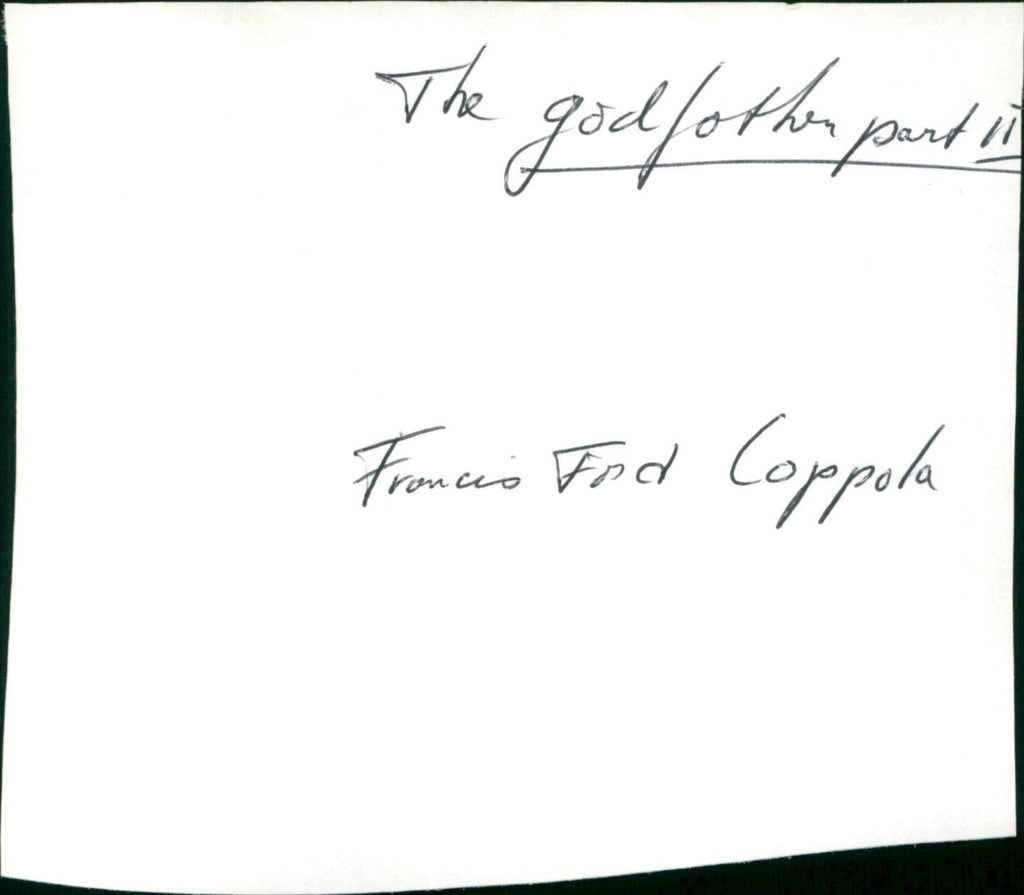 The godfather part II
Francis Ford Coppola